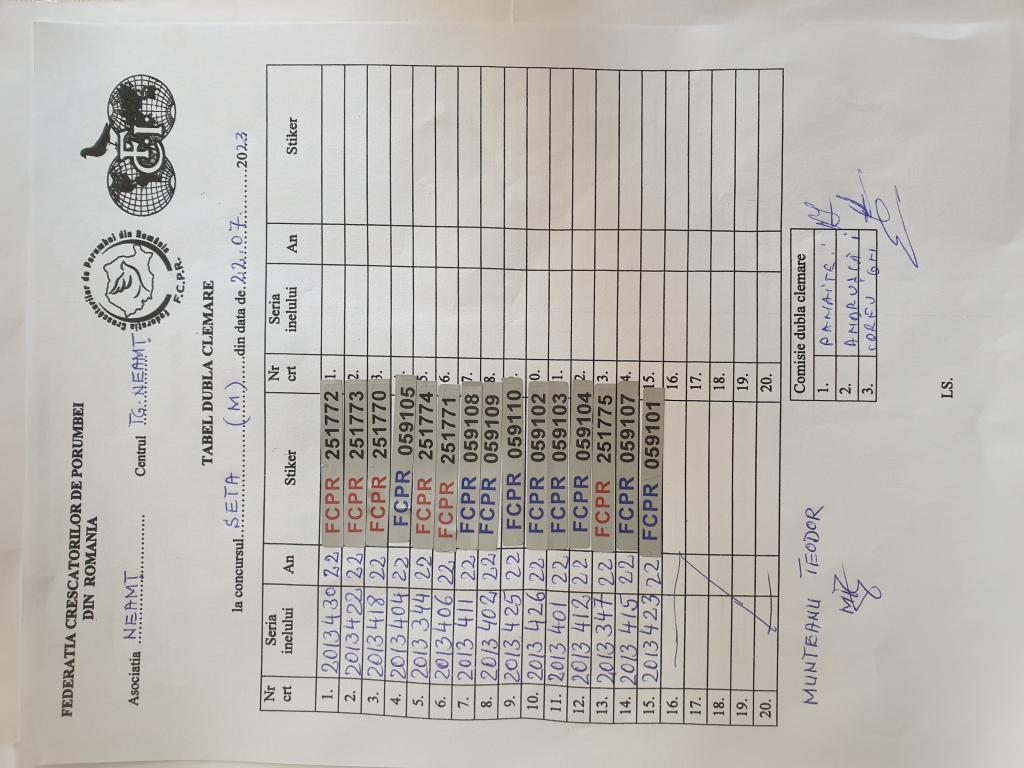 FEDERATIA CRESCATORILOR DE PORUMBEI
DIN ROMANIA
Federația Crescătorilor de Porumbei din România
F.C.P.R.
FCI
Asociatia NEAMT Centrul TG. NEAMT
TABEL DUBLA CLEMARE
la concursul SETA (M) din data de 22.07.2023
Nr crt Seria inelului An Stiker Nr crt Seria inelului An Stiker
1. 2013430 22 FCPR 251772 1.
2. 2013422 22 FCPR 251773 2.
3. 2013418 22 FCPR 251770 3.
4. 2013404 22 FCPR 059105
5. 2013344 22 FCPR 251774 5.
6. 2013406 22 FCPR 251771 6.
7. 2013411 22 FCPR 059108 7.
8. 2013402 22 FCPR 059109 8.
9. 2013425 22 FCPR 059110
10. 2013426 22 FCPR 059102 0.
11. 2013401 22 FCPR 059103 1.
12. 2013412 22 FCPR 059104 2.
13. 2013347 22 FCPR 251775 3.
14. 2013415 22 FCPR 059107 4.
15. 2013423 22 FCPR 059101 15.
16. 16.
17. 17.
18. 18.
19. 19.
20. 20.
MUNTEANU TEODOR
Comisie dubla clemare
1. PANAITE
2.
3.
LS.